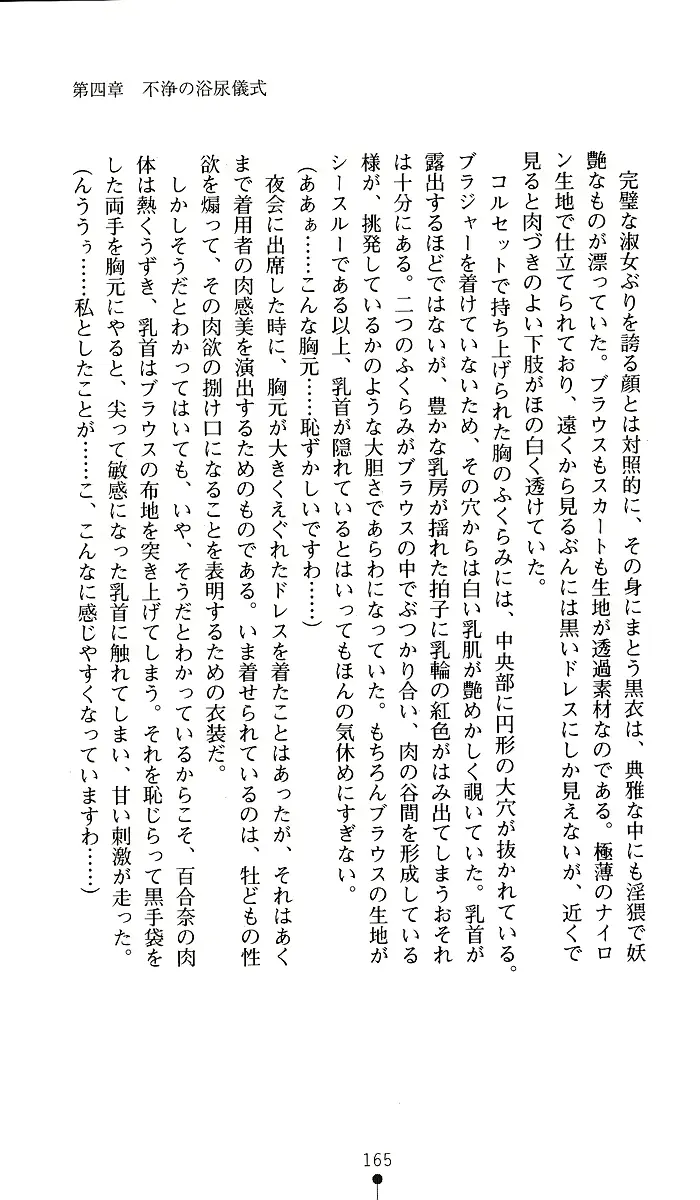 第四章　不浄の浴尿儀式
　完璧な淑女ぶりを誇る顔とは対照的に、その身にまとう黒衣は、典雅な中にも淫猥で妖
艶なものが漂っていた。ブラウスもスカートも生地が透過素材なのである。極薄のナイロ
ン生地で仕立てられており、遠くから見るぶんには黒いドレスにしか見えないが、近くで
見ると肉づきのよい下肢がほの白く透けていた。
　コルセットで持ち上げられた胸のふくらみには、中央部に円形の大穴が抜かれている。
ブラジャーを着けていないため、その穴からは白い乳肌が艶めかしく覗いていた。乳首が
露出するほどではないが、豊かな乳房が揺れた拍子に乳輪の紅色がはみ出てしまうおそれ
は十分にある。二つのふくらみがブラウスの中でぶつかり合い、肉の谷間を形成している
様が、挑発しているかのような大胆さであらわになっていた。もちろんブラウスの生地が
シースルーである以上、乳首が隠れているとはいってもほんの気休めにすぎない。
（あぁぁ……こんな胸元……恥ずかしいですわ……）
　夜会に出席した時に、胸元が大きくえぐれたドレスを着たことはあったが、それはあく
まで着用者の肉感美を演出するためのものである。いま着せられているのは、牡どもの性
欲を煽って、その肉欲の捌け口になることを表明するための衣装だ。
　しかしそうだとわかってはいても、いや、そうだとわかっているからこそ、百合奈の肉
体は熱くうずき、乳首はブラウスの布地を突き上げてしまう。それを恥じらって黒手袋を
した両手を胸元にやると、尖って敏感になった乳首に触れてしまい、甘い刺激が走った。
（んううぅ……私としたことが……こ、こんなに感じやすくなっていますわ……）
165